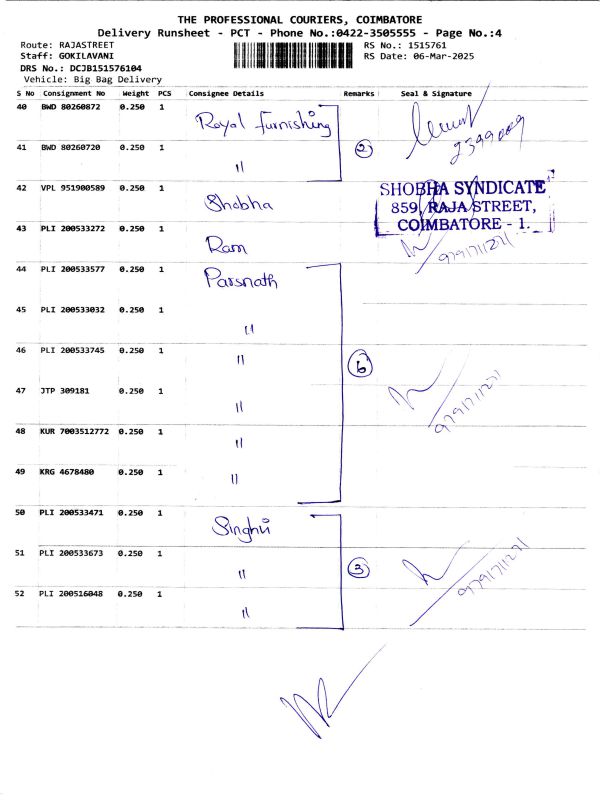 THE PROFESSIONAL COURIERS, COIMBATORE
Delivery Runsheet - PCT - Phone No.:0422-3505555 - Page No.:4
Route: RAJASTREET RS No.: 1515761
Staff: GOKILAVANI RS Date: 06-Mar-2025
DRS No.: DCJB151576104
Vehicle: Big Bag Delivery
S No Consignment No Weight PCS Consignee Details Remarks Seal & Signature
40 BWD 80260872 0.250 1 Royal furnishing
41 BWD 80260720 0.250 1 〃 2
42 VPL 951900589 0.250 1 Shobha
SHOBHA SYNDICATE
859, RAJA STREET,
COIMBATORE - 1.
43 PLI 200533272 0.250 1 Ram 9791711271
44 PLI 200533577 0.250 1 Parsnath
45 PLI 200533032 0.250 1 〃
46 PLI 200533745 0.250 1 〃 6
47 JTP 309181 0.250 1 〃 9791711271
48 KUR 7003512772 0.250 1 〃
49 KRG 4678480 0.250 1 〃
50 PLI 200533471 0.250 1 Singhvi
51 PLI 200533673 0.250 1 〃 3 9791711271
52 PLI 200516048 0.250 1 〃